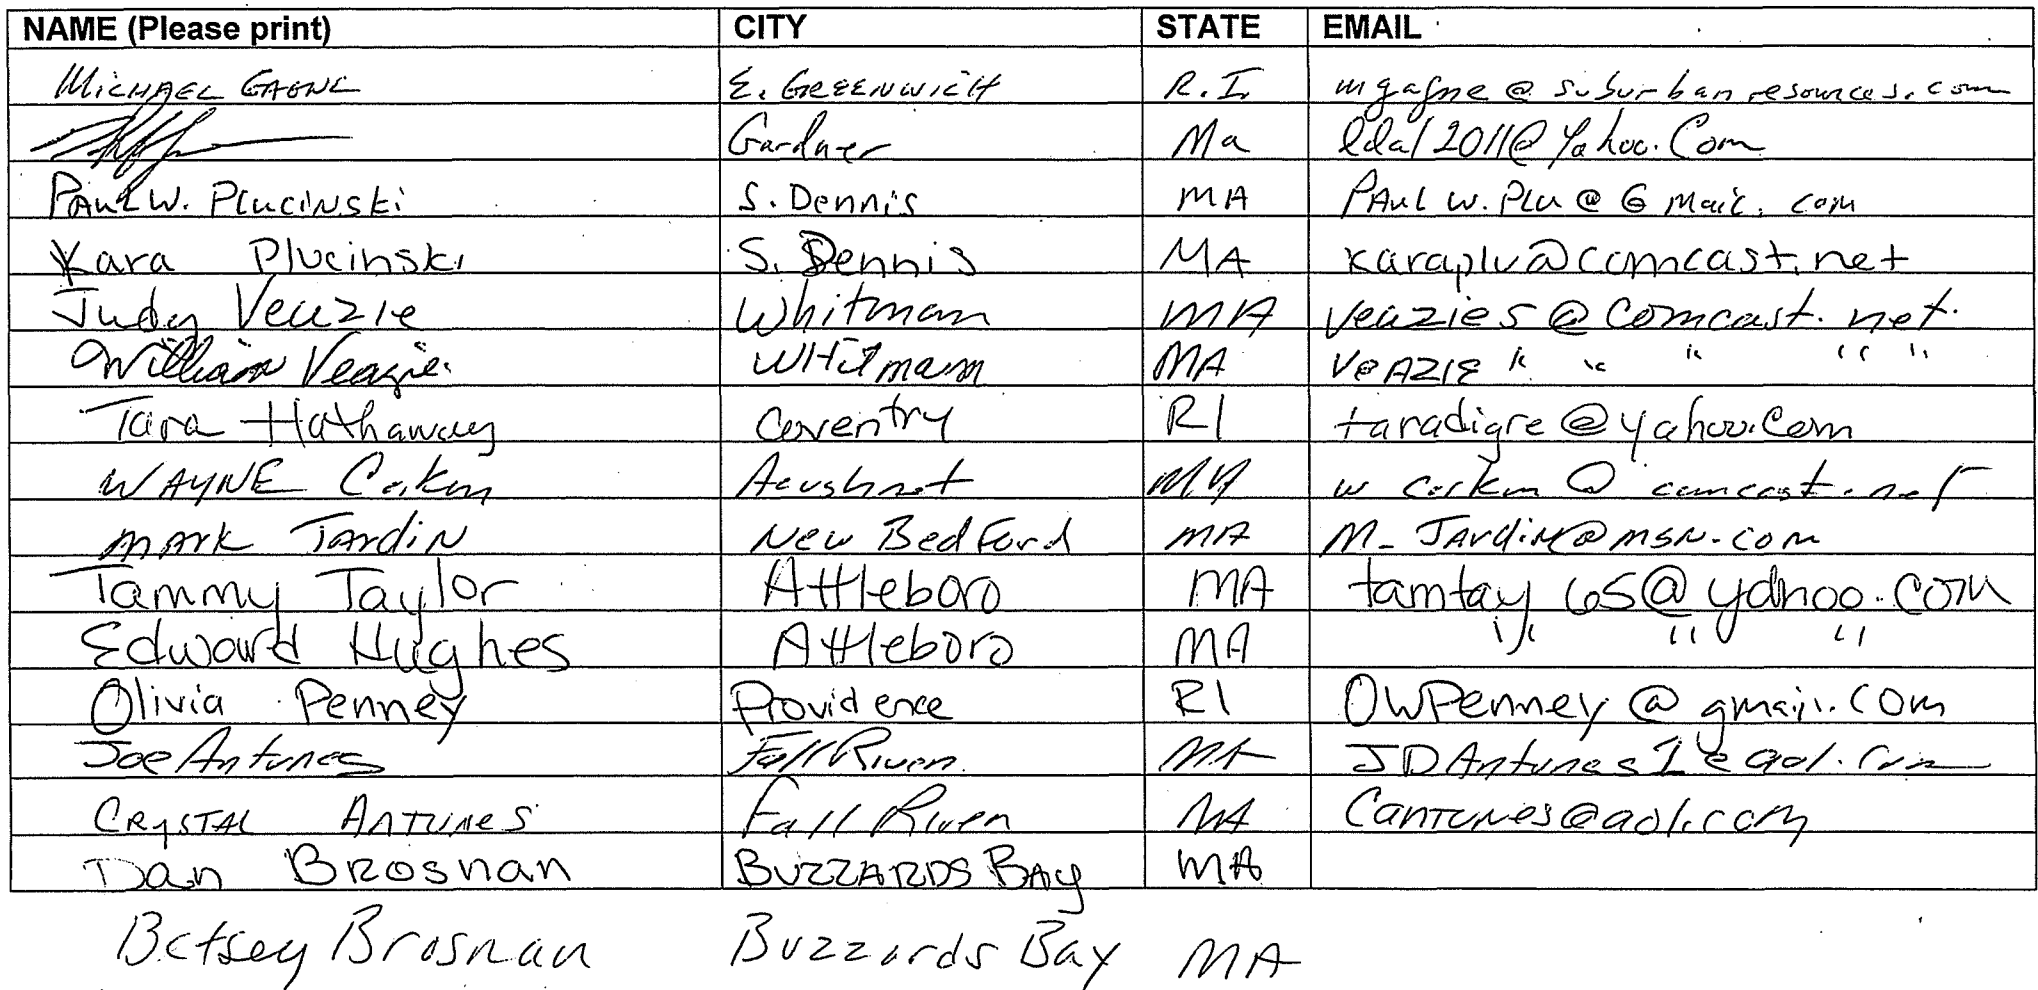 NAME (Please print) CITY STATE EMAIL
MICHAEL GAGNE E. GREENWICH R.I. mgagne@suburbanresources.com
Gardner Ma ldal2011@Yahoo.Com
PAUL W. PLUCINSKI S. Dennis MA PAULW.PLU@GMAIL.COM
Kara Plucinski S. Dennis MA karaplu@comcast.net
Judy Veazie Whitman MA veazies@comcast.net.
William Veazie WHitmann MA VeAZIE " " " " "
Tara Hathaway Coventry RI taradigre@yahoo.com
WAYNE Acushnet MA @comcast.net
MARK JARDIN New BedFord MA M_JARdiN@MSN.com
Tammy Taylor Attleboro MA tamtay65@yahoo.com
Edward Hughes Attleboro MA " " "
Olivia Penney Providence RI OWPenney@gmail.com
Joe Antunes Fall River MA JDAntunes1@aol.com
CRYSTAL ANTUNES Fall River MA Cantunes@aol.com
Dan BROSNAN BUZZARDS BAY MA
Betsey Brosnan Buzzards Bay MA